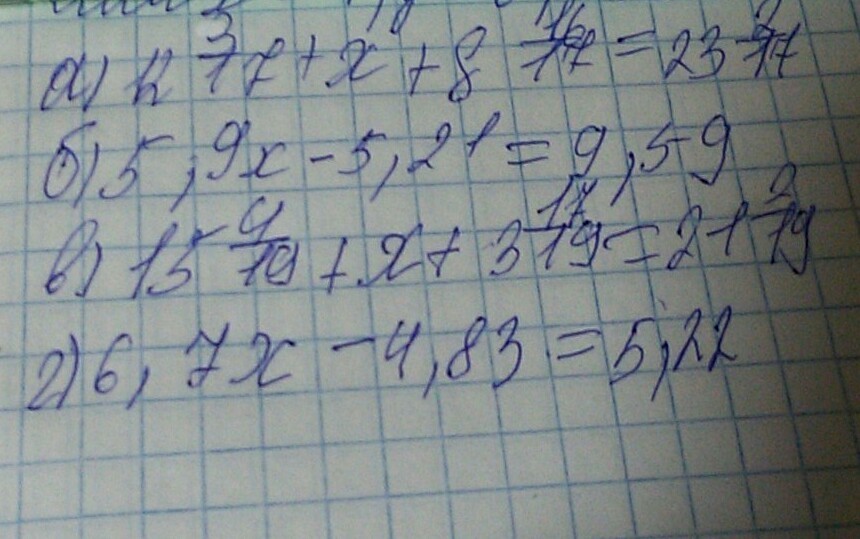 а) 12 3/17 + x + 8 16/17 = 23 2/17
б) 5,9x - 5,21 = 9,59
в) 15 4/19 + x + 3 17/19 = 21 2/19
г) 6,7x - 4,83 = 5,22